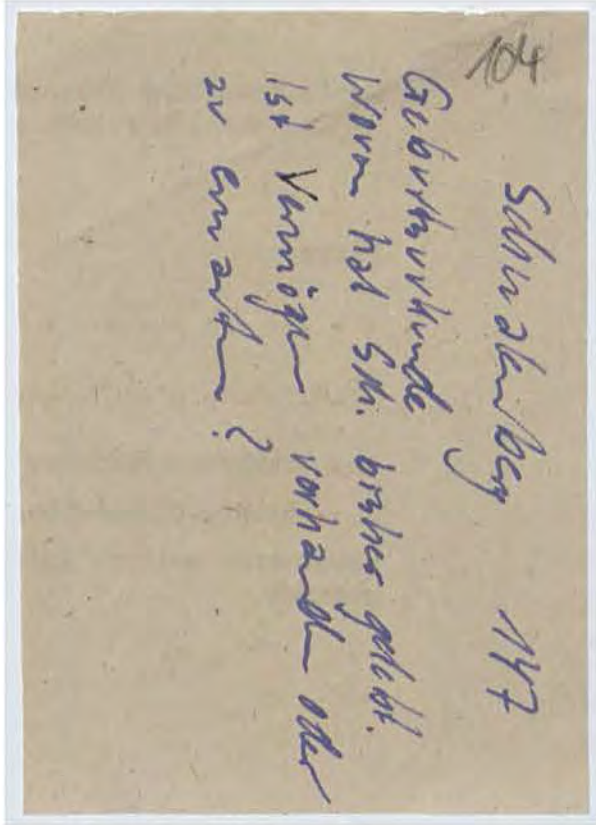 104
Schwalenberg 147
Geburtsurkunde
Wovon hat Sch. bisher gelebt.
Ist Vermögen vorhanden oder
zu erwarten?